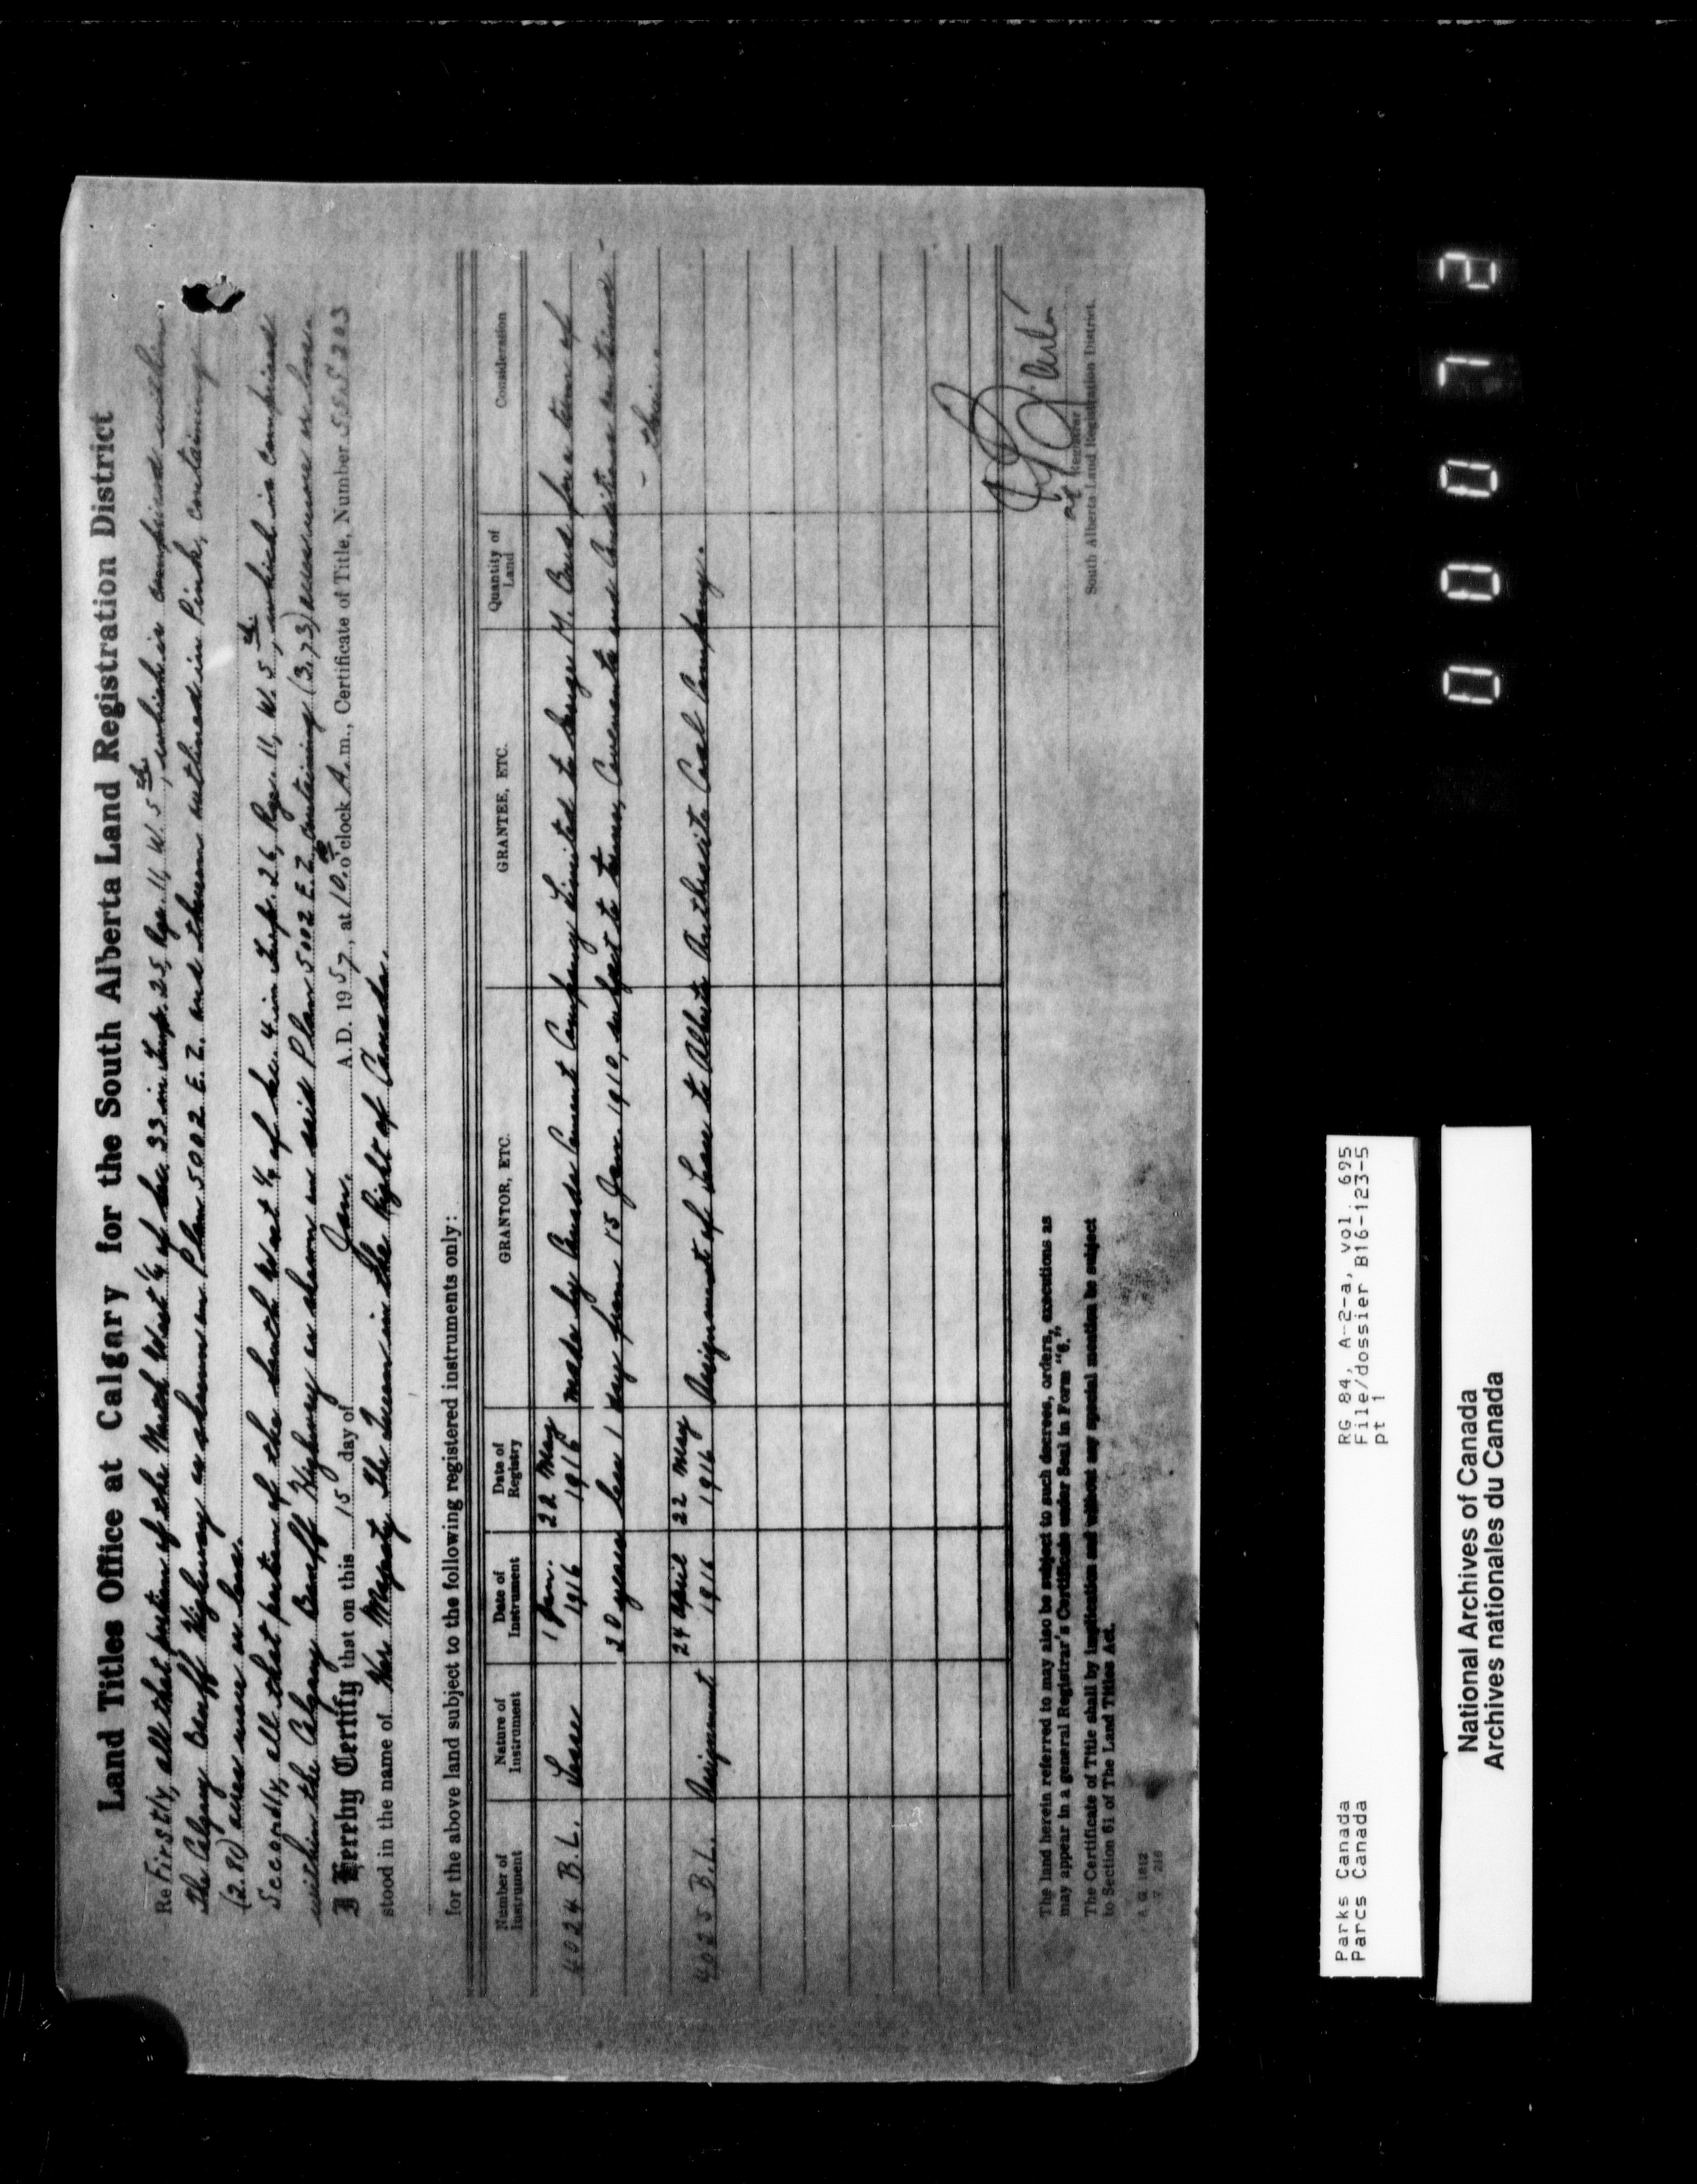 Land Titles Office at Calgary for the South Alberta Land Registration District
Re Firstly, all that portion of the North West 1/4 of Sec. 33 in Twp. 25, Rge. 11, W. 5th, which is comprised within
the Calgary Banff Highway as shown on Plan 5002 E.Z. and thereon outlined in Pink, containing
(2.81) acres more or less.
Secondly, all that portion of the South West 1/4 of Sec. 4 in Twp. 26, Rge. 11, W. 5th, which is comprised
within the Calgary Banff Highway as shown on said Plan 5002 E.Z. containing (3.73) acres more or less.
I Hereby Certify that on this 15 day of Jan. A.D. 1957, at 10.00 o'clock A.m., Certificate of Title, Number 55S203
stood in the name of Her Majesty The Queen in the Right of Canada.
for the above land subject to the following registered instruments only:
Number of Instrument Nature of Instrument Date of Instrument Date of Registry GRANTOR, ETC. GRANTEE, ETC. Quantity of Land Consideration
4024 B.L. Lease 1 Jan. 1916 22 May 1916 made by Canada Cement Company Limited to M. for a term of
20 years less 1 day from 15 Jan. 1910, subject to terms, Covenants and Conditions
- therein.
4025 B.L. Assignment 24 April 1916 22 May 1916 Assignment of Lease to Alberta Anthracite Coal Company.
The land herein referred to may also be subject to such decrees, orders, executions as
may appear in a general Registrar's Certificate under Seal in Form "6."
The Certificate of Title shall by implication and without any special mention be subject
to Section 61 of The Land Titles Act.
Registrar
South Alberta Land Registration District.
A. G. 1812
Parks Canada
Parcs Canada
RG 84, A-2-a, vol. 695
File/dossier B16-123-5
pt 1
National Archives of Canada
Archives nationales du Canada
000712